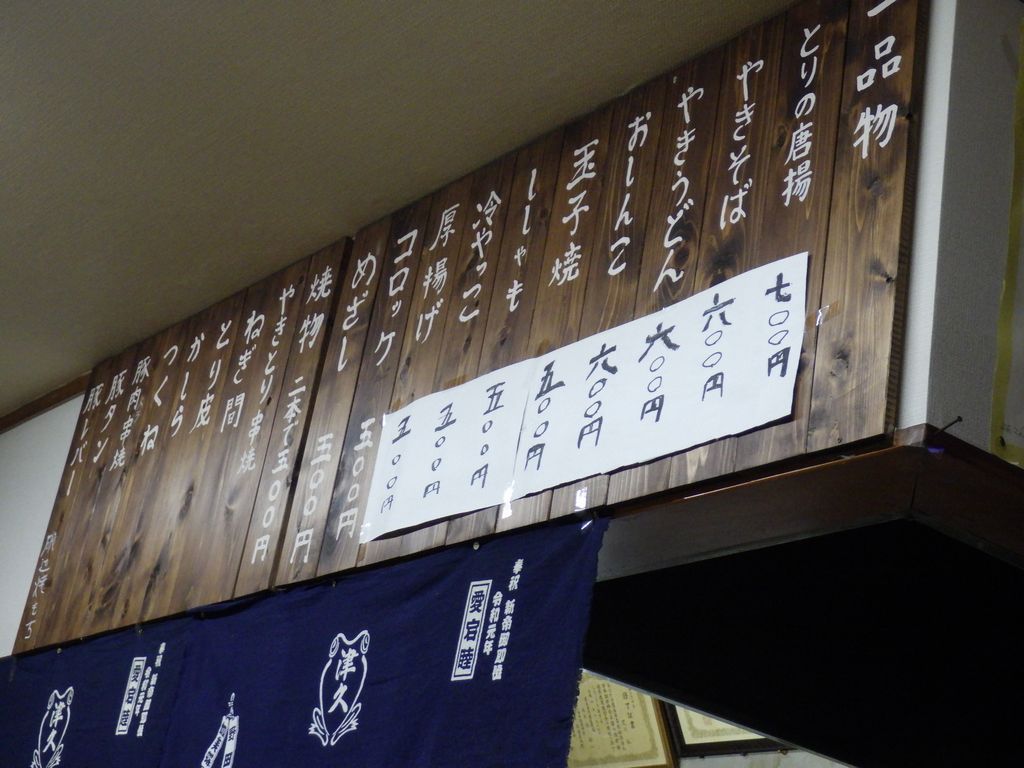 一品物
とりの唐揚 七〇〇円
やきそば 六〇〇円
やきうどん 六〇〇円
おしんこ 六〇〇円
玉子焼 五〇〇円
ししゃも 五〇〇円
冷やっこ 五〇〇円
厚揚げ 五〇〇円
コロッケ 五〇〇円
めざし 三〇〇円
焼物 二本で五〇〇円
やきとり串焼
ねぎ間
とり皮
かしら
つくね
豚肉串焼
豚タン
豚レバー
奉祝
令和元年
愛宕睦
津久
奉祝
令和元年
愛宕睦
津久